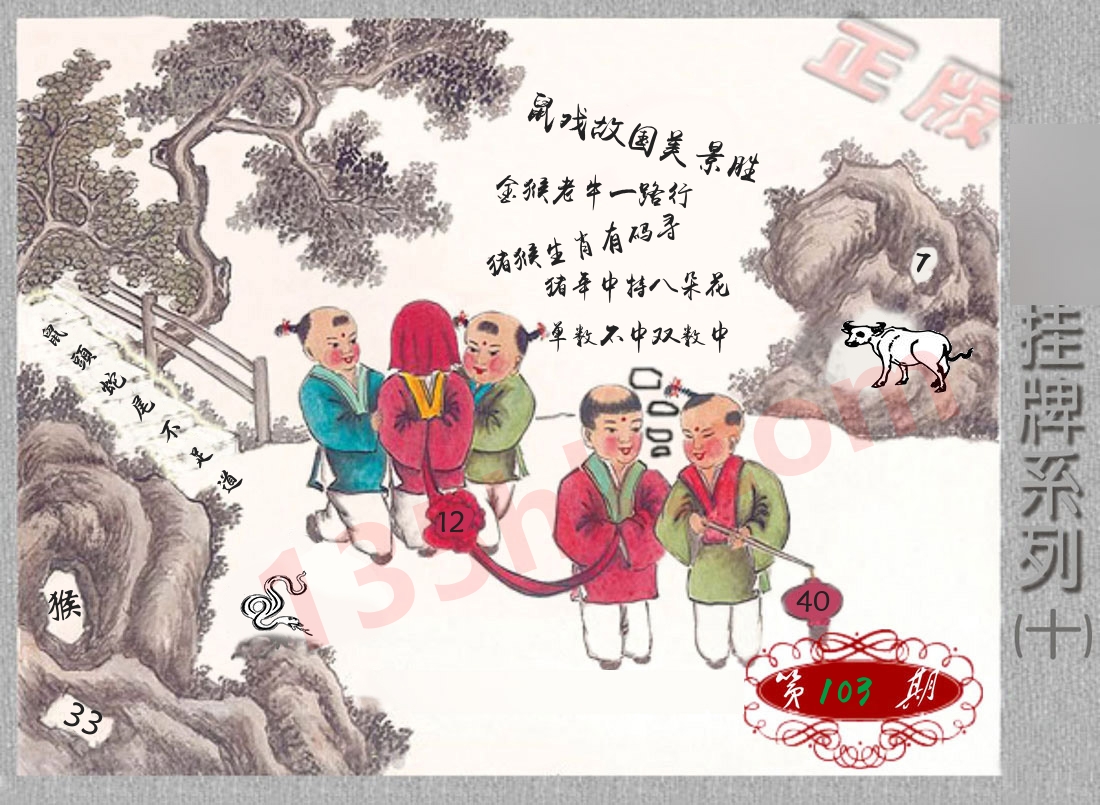 正版
鼠戏故国美景胜
金猴老牛一路行
猪猴生肖有码寻
猪年中特八朵花
单数不中双数中
7
鼠头蛇尾不足道
12
40
猴
33
第103期
挂牌系列(十)